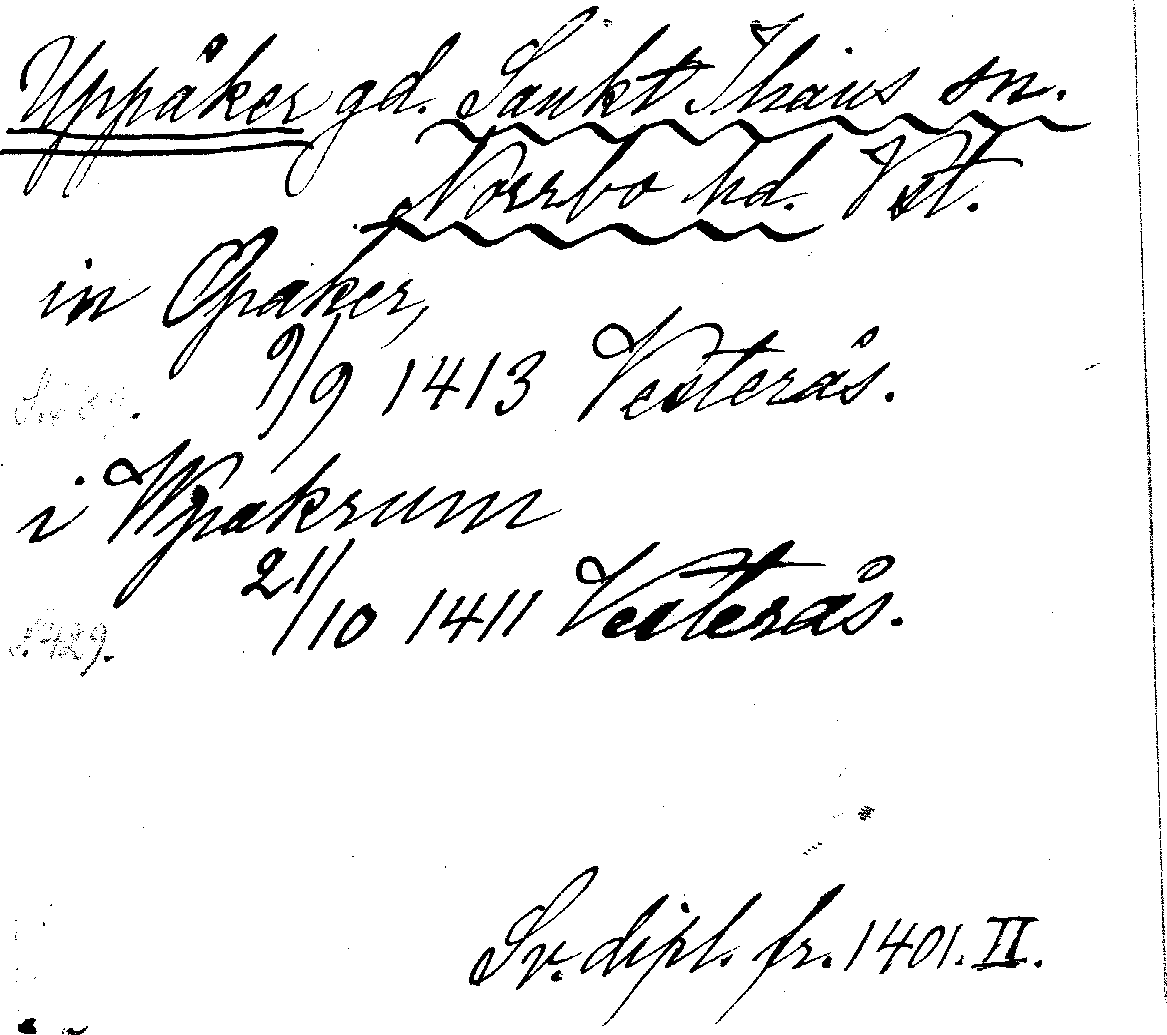 Uppåker gd. Sankt Ihans sn.
Norrbo hd. Vst.
in Opaker,
9/9 1413 Vesterås.
i Wpakrum
21/10 1411 Vesterås.
S. 429.
Sv. dipl. fr. 1401. II.